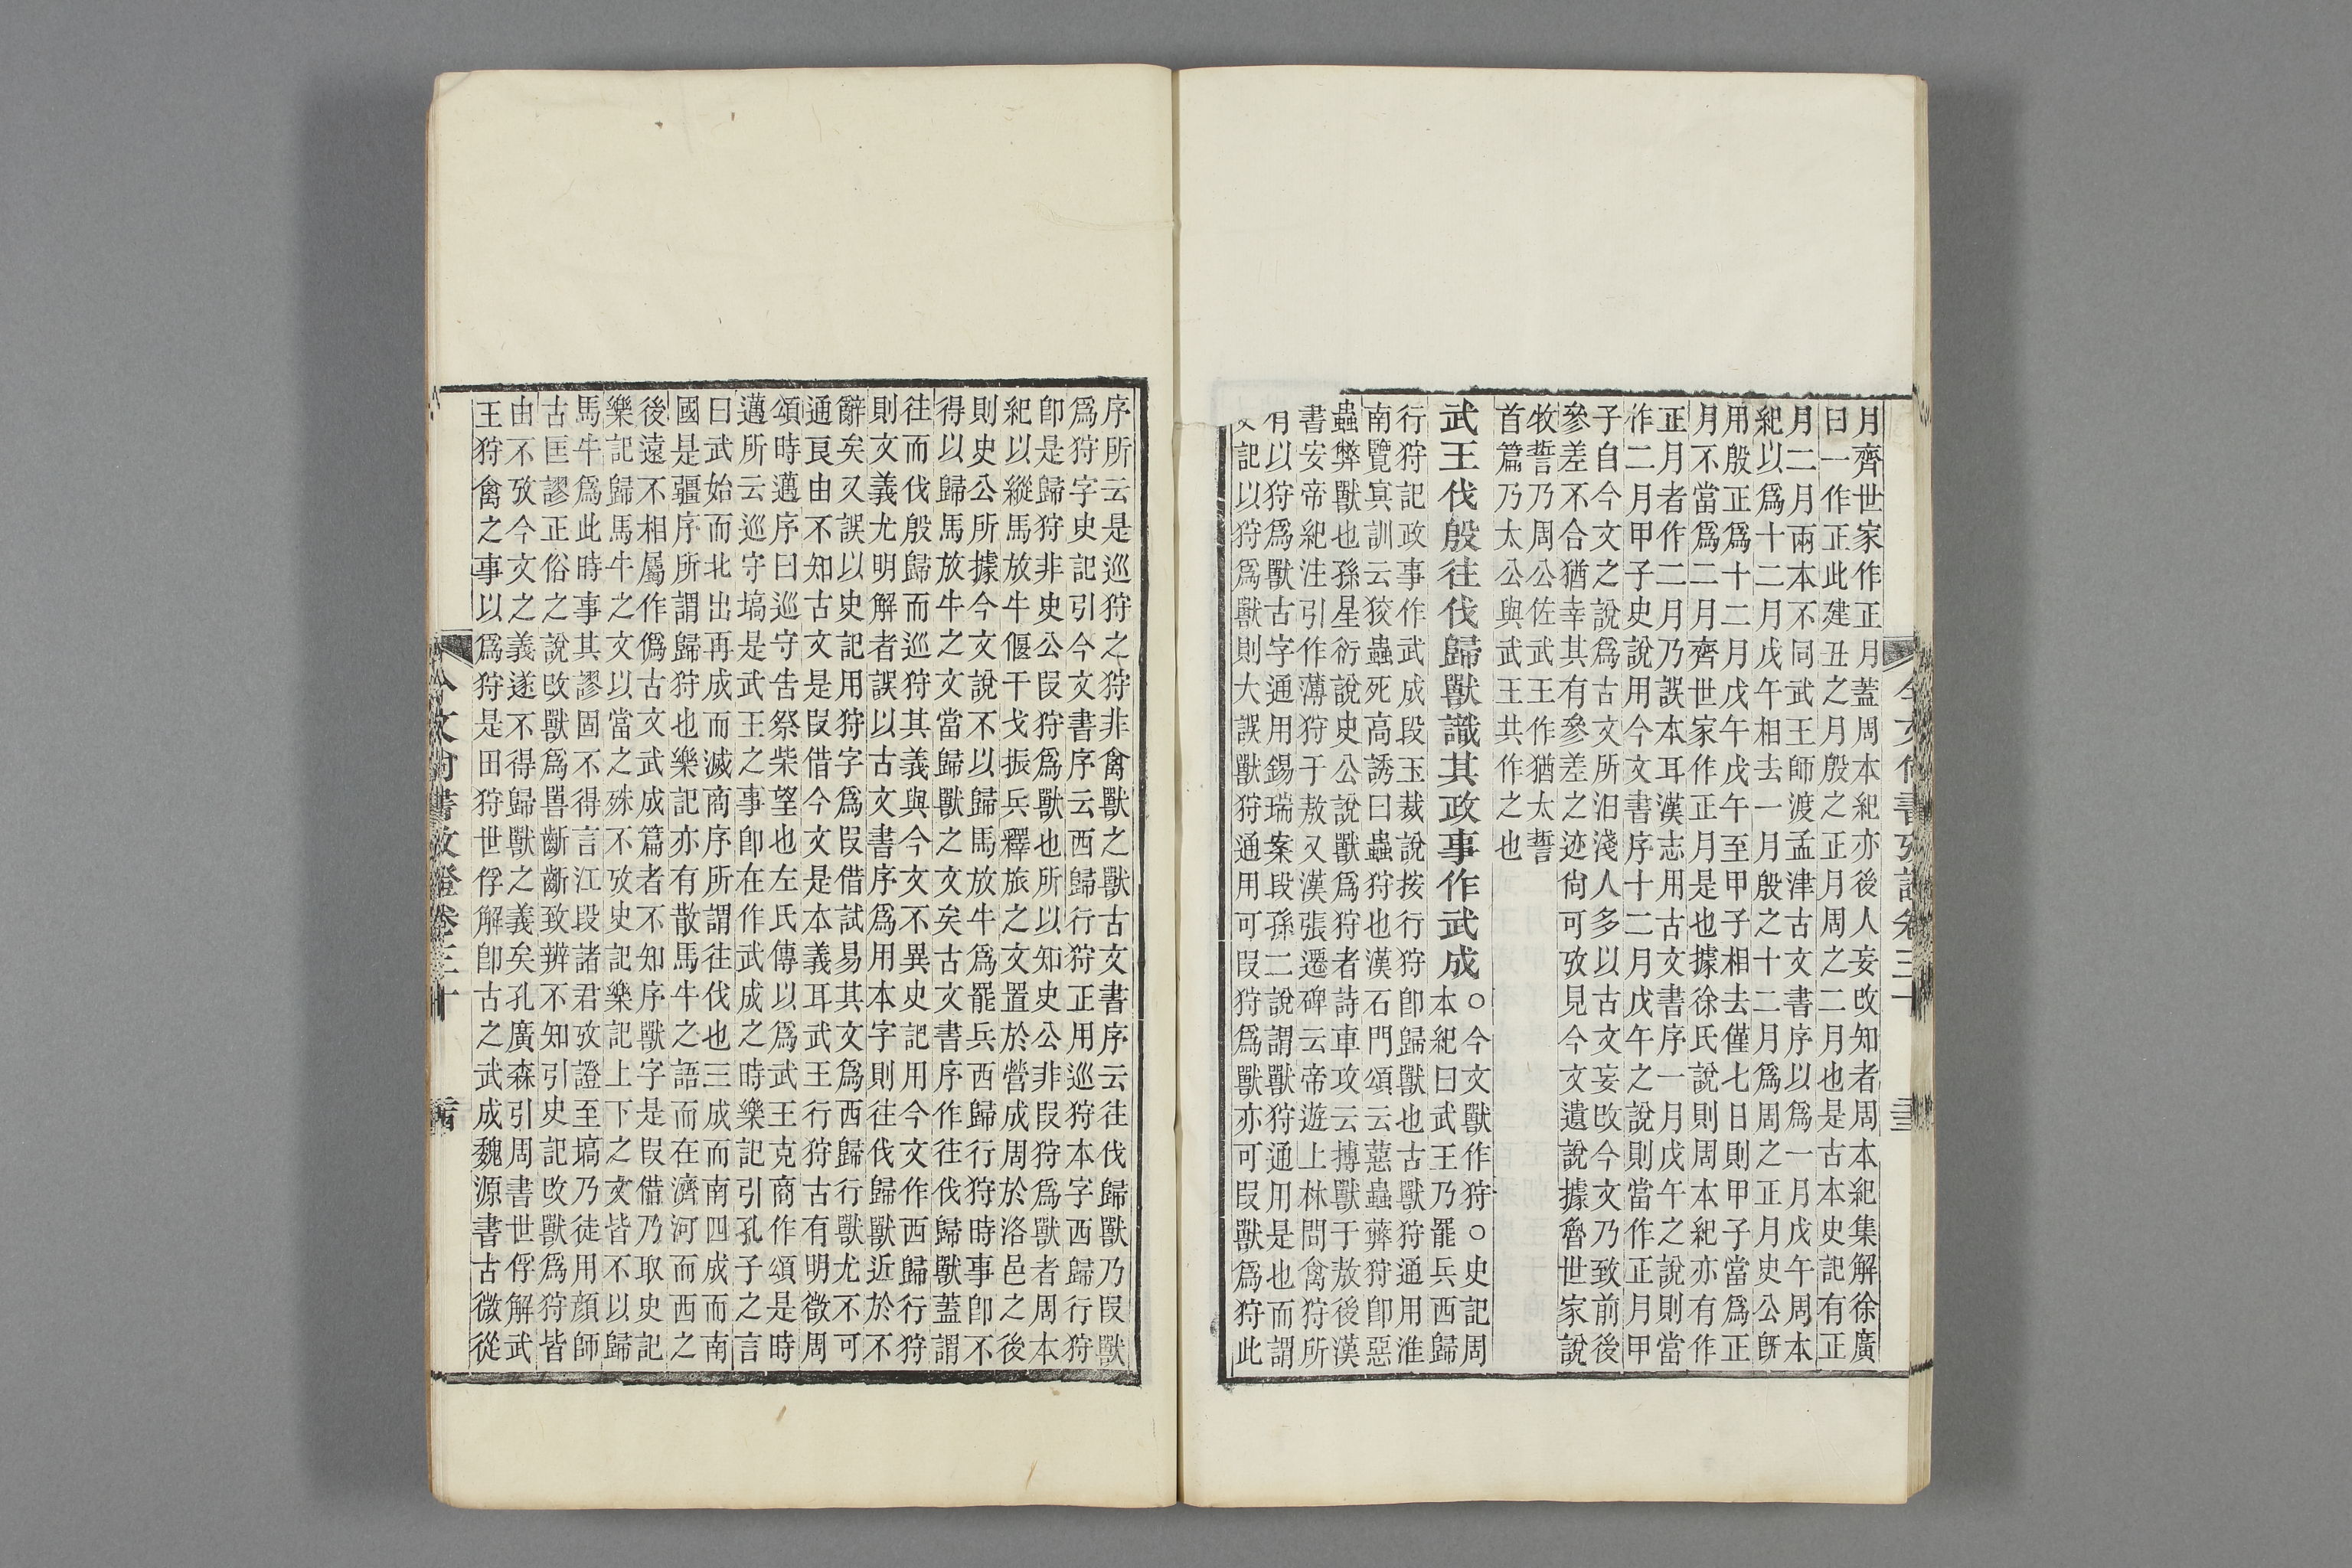 月齊世家作正月蓋周本紀亦後人妄改知者周本紀集解徐廣
曰一作正此建丑之月殷之正月周之二月也是古本史記有正
月二月兩本不同武王師渡孟津古文書序以爲一月戊午周本
紀以爲十二月戊午相去一月殷之十二月爲周之正月史公旣
用殷正爲十二月戊午戊午至甲子相去僅七日則甲子當爲正
月不當爲二月齊世家作正月是也據徐氏說則周本紀亦有作
正月者作二月乃誤本耳漢志用古文書序一月戊午之說則當
作二月甲子史說用今文書序十二月戊午之說則當作正月甲
子自今文之說爲古文所汩淺人多以古文妄改今文乃致前後
參差不合猶幸其有參差之迹尙可攷見今文遺說據魯世家說
牧誓乃周公佐武王作猶太誓
首篇乃太公與武王共作之也
武王伐殷往伐歸獸識其政事作武成○今文獸作狩○史記周
本紀曰武王乃罷兵西歸
行狩記政事作武成段玉裁說按行狩卽歸獸也古獸狩通用淮
南覽冥訓云狡蟲死高誘曰蟲狩也漢石門頌云蕜蟲㢢狩卽惡
蟲弊獸也孫星衍說史公說獸爲狩者詩車攻云搏獸于敖後漢
書安帝紀注引作薄狩于敖又漢張遷碑云帝遊上林問禽狩所
有以狩爲獸古字通用錫瑞案段孫二說謂獸狩通用是也而謂
史記以狩爲獸則大誤獸狩通用可叚狩爲獸亦可叚獸爲狩此
今文尙書攷證卷三十
序所云是巡狩之狩非禽獸之獸古文書序云往伐歸獸乃叚獸
爲狩字史記引今文書序云西歸行狩正用巡狩本字西歸行狩
卽是歸狩非史公叚狩爲獸也所以知史公非叚狩爲獸者周本
紀以縱馬放牛偃干戈振兵釋旅之文置於營成周於洛邑之後
則史公所據今文說不以歸馬放牛爲罷兵西歸行狩時事卽不
得以歸馬放牛之文當歸獸之文矣古文書序作往伐歸獸蓋謂
往而伐殷歸而巡狩其義與今文不異史記用今文作西歸行狩
則文義尤明解者誤以古文書序爲用本字則往伐歸獸近於不
辭矣又誤以史記用狩字爲叚借試易其文爲西歸行獸尤不可
通良由不知古文是叚借今文是本義耳武王行狩古有明徵周
頌時邁序曰巡守告祭柴望也左氏傳以爲武王克商作頌是時
邁所云巡守塙是武王之事卽在作武成之時樂記引孔子之言
曰武始而北出再成而滅商序所謂往伐也三成而南四成而南
國是疆序所謂歸狩也樂記亦有散馬牛之語而在濟河而西之
後遠不相屬作僞古文武成篇者不知序獸字是叚借乃取史記
樂記歸馬牛之文以當之殊不攷史記樂記上下之文皆不以歸
馬牛爲此時事其謬固不得言江段諸君攷證至塙乃徒用顏師
古匡謬正俗之說改獸爲嘼齗齗致辨不知引史記改獸爲狩皆
由不攷今文之義遂不得歸獸之義矣孔廣森引周書世俘解武
王狩禽之事以爲狩是田狩世俘解卽古之武成魏源書古微從